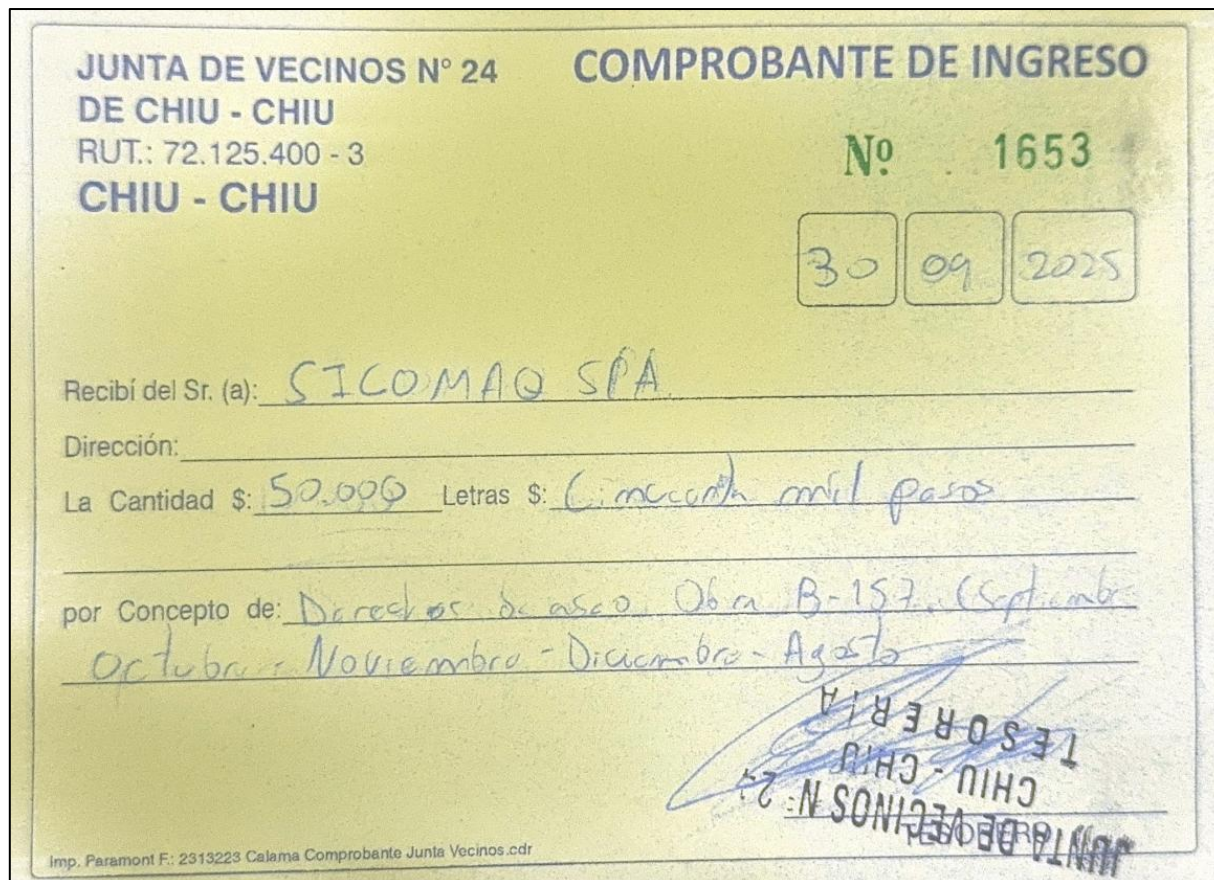 JUNTA DE VECINOS N° 24
DE CHIU - CHIU
RUT.: 72.125.400 - 3
CHIU - CHIU
COMPROBANTE DE INGRESO
Nº 1653
30 09 2025
Recibí del Sr. (a): SICOMAQ SPA
Dirección:
La Cantidad $: 50.000 Letras $: Cincuenta mil pesos
por Concepto de: Derechos de aseo Obra B-157. (Septiembre
Octubre - Noviembre - Diciembre - Agosto
TESORERO
JUNTA DE VECINOS Nº 24
CHIU - CHIU
TESORERIA
Imp. Paramont F.: 2313223 Calama Comprobante Junta Vecinos.cdr